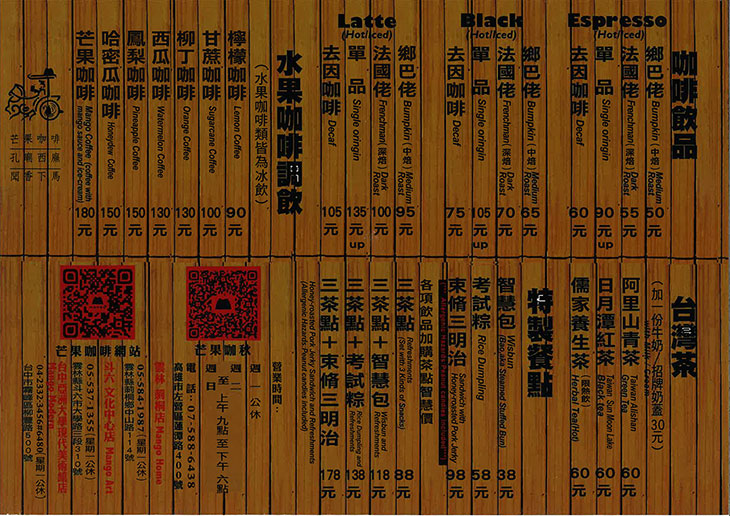 咖啡飲品
Espresso
(Hot/Iced)
鄉巴佬 Bumpkin (中焙) Medium Roast 50元
法國佬 Frenchman (深焙) Dark Roast 55元
單品 Single oringin 90元up
去因咖啡 Decaf 60元
Black
(Hot/Iced)
鄉巴佬 Bumpkin (中焙) Medium Roast 65元
法國佬 Frenchman (深焙) Dark Roast 70元
單品 Single oringin 105元up
去因咖啡 Decaf 75元
Latte
(Hot/Iced)
鄉巴佬 Bumpkin (中焙) Medium Roast 95元
法國佬 Frenchman (深焙) Dark Roast 100元
單品 Single oringin 135元up
去因咖啡 Decaf 105元
水果咖啡調飲
(水果咖啡類皆為冰飲)
檸檬咖啡 Lemon Coffee 90元
甘蔗咖啡 Sugarcane Coffee 100元
柳丁咖啡 Orange Coffee 130元
西瓜咖啡 Watermelon Coffee 130元
鳳梨咖啡 Pineapple Coffee 150元
哈密瓜咖啡 Honeydew Coffee 150元
芒果咖啡 Mango Coffee (coffee with mango sauce and ice-cream) 180元
啡麻馬
咖西下
果廟香
芒孔聞
台灣茶
(加一份牛奶/招牌奶蓋30元)
阿里山青茶 Taiwan Alishan Green Tea 60元
日月潭紅茶 Taiwan Sun Moon Lake Black Tea 60元
儒家養生茶 (限熱飲) Herbal Tea(hot) 60元
特製餐點
智慧包 Wisbun (Bao, aka Steamed Stuffed Bun) 38元
考試粽 Rice Dumpling 58元
束脩三明治 Sandwich with Honey-roasted Pork Jerky 98元
各項飲品加購茶點智慧價
三茶點 Refreshments (Set with 3 Kinds of Snacks) 88元
三茶點＋智慧包 Wisbun and Refreshments 118元
三茶點＋考試粽 Rice Dumpling and Refreshments 138元
三茶點＋束脩三明治 Honey-roasted Pork Jerky Sandwich and Refreshments (Allergenic Hazards: Peanut candies included) 178元
營業時間：
週一公休
週二至週日 上午九點至下午六點
芒果咖秋
電話：07-588-6438
高雄市左營區蓮潭路400號
雲林 剌桐店 Mango Home
05-584-1987(星期一公休)
雲林縣莿桐鄉中山路114號
斗六 文化中心店 Mango Art
05-537-1355(星期一公休)
雲林縣斗六市大學路三段310號
台中 亞洲大學現代美術館店
Mango Modern
04-2332-3456#6480(星期一公休)
台中市霧峰區柳豐路500號
芒果咖啡網站